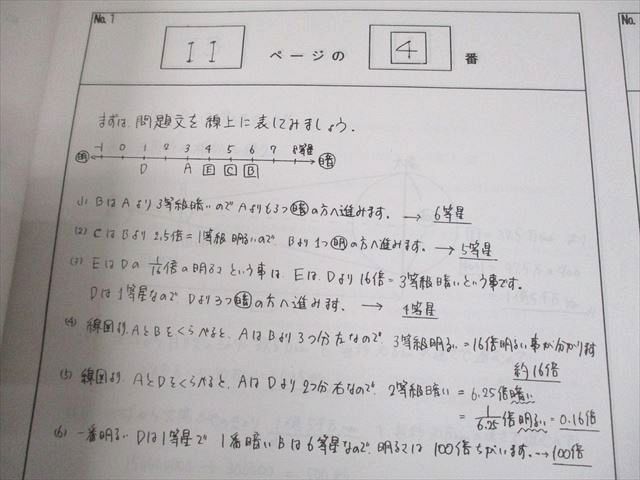 No. 1
11 ページの 4 番
No.
まずは、問題文を線上に表してみましょう。
-1 0 1 2 3 4 5 6 7 8等星
明 暗
D A E C B
(1) BはAより3等級暗いのでAよりも3つ暗の方へ進みます。 → 6等星
(2) CはBより2.5倍=1等級明るいので、Bより1つ明の方へ進みます。 → 5等星
(3) EはDの1/16倍の明るさという事は、Eは、Dより16倍=3等級暗いという事です。
Dは1等星なのでDより3つ暗の方へ進みます。 → 4等星
(4) 線図より、AとBをくらべると、AはBより3つ分左なので、3等級明るい=16倍明るい事が分かります
約16倍
(5) 線図より、AとDをくらべると、AはDより2つ分右なので、2等級暗い = 6.25倍暗い
= 1/6.25倍明るい = 0.16倍
(6) 一番明るいDは1等星で1番暗いBは6等星なので、明るさは100倍ちがいます。→ 100倍